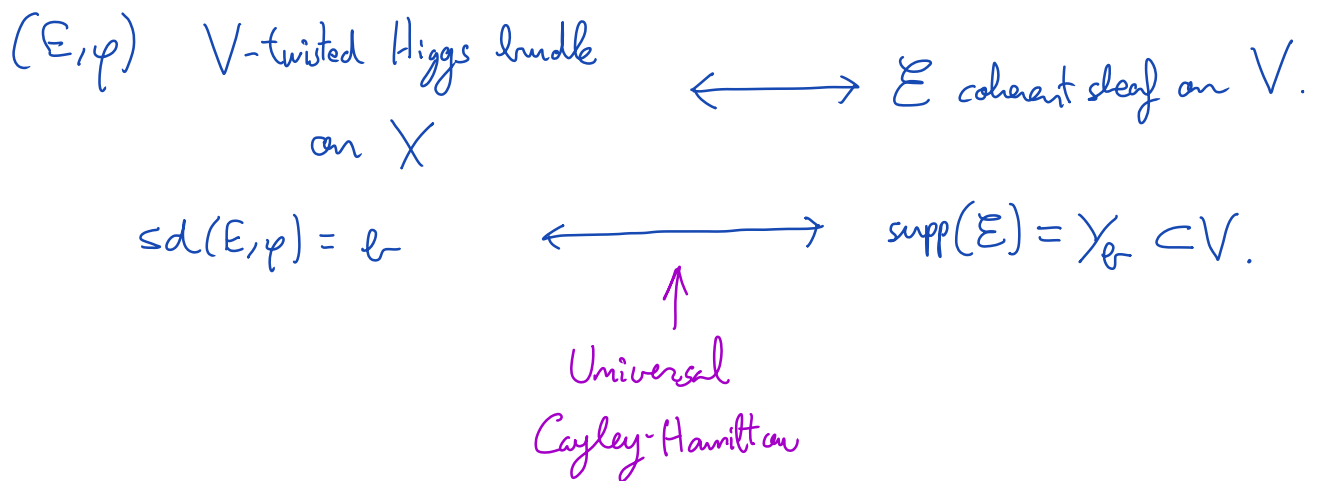 (E,φ) V-twisted Higgs bundle
on X
⟷ ℰ coherent sheaf on V.
sd(E,φ) = b ⟷ supp(ℰ) = Y_b ⊂ V.
↑
Universal
Cayley-Hamilton